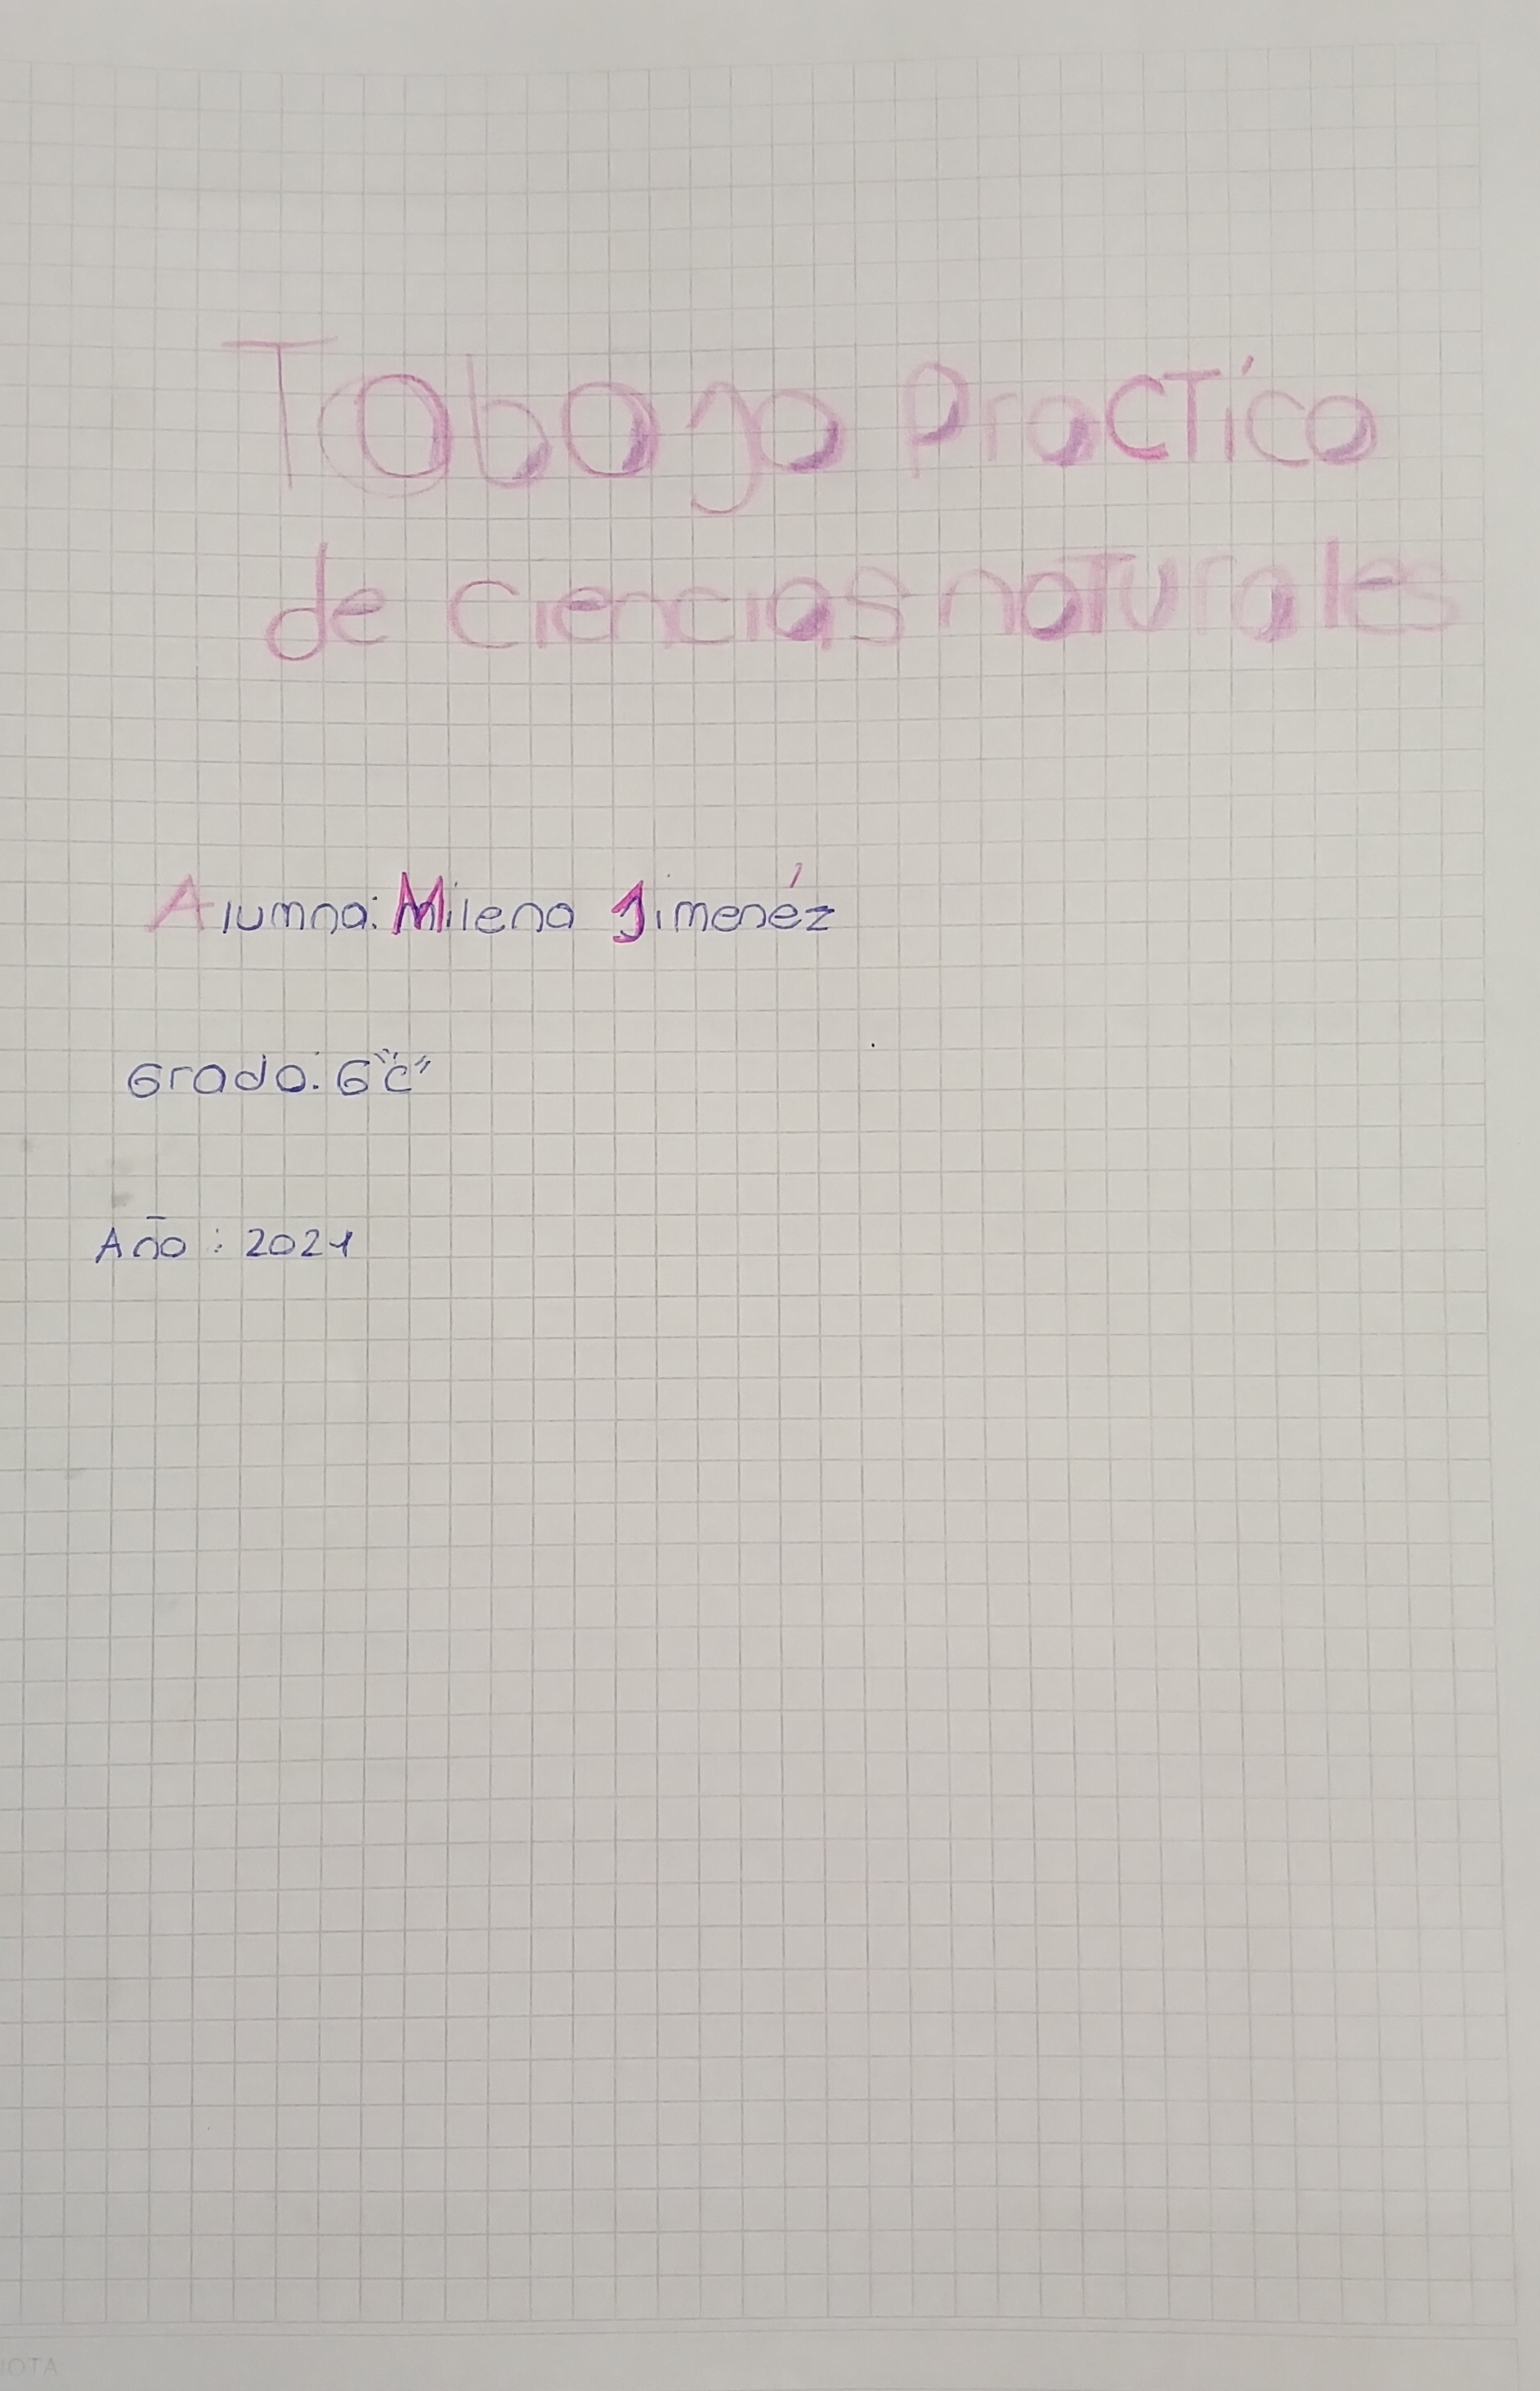 Tabajo PracTíco
de ciencias naTurales
Alumna: Milena Jimenéz
Grado: 6 "C"
Año : 2021